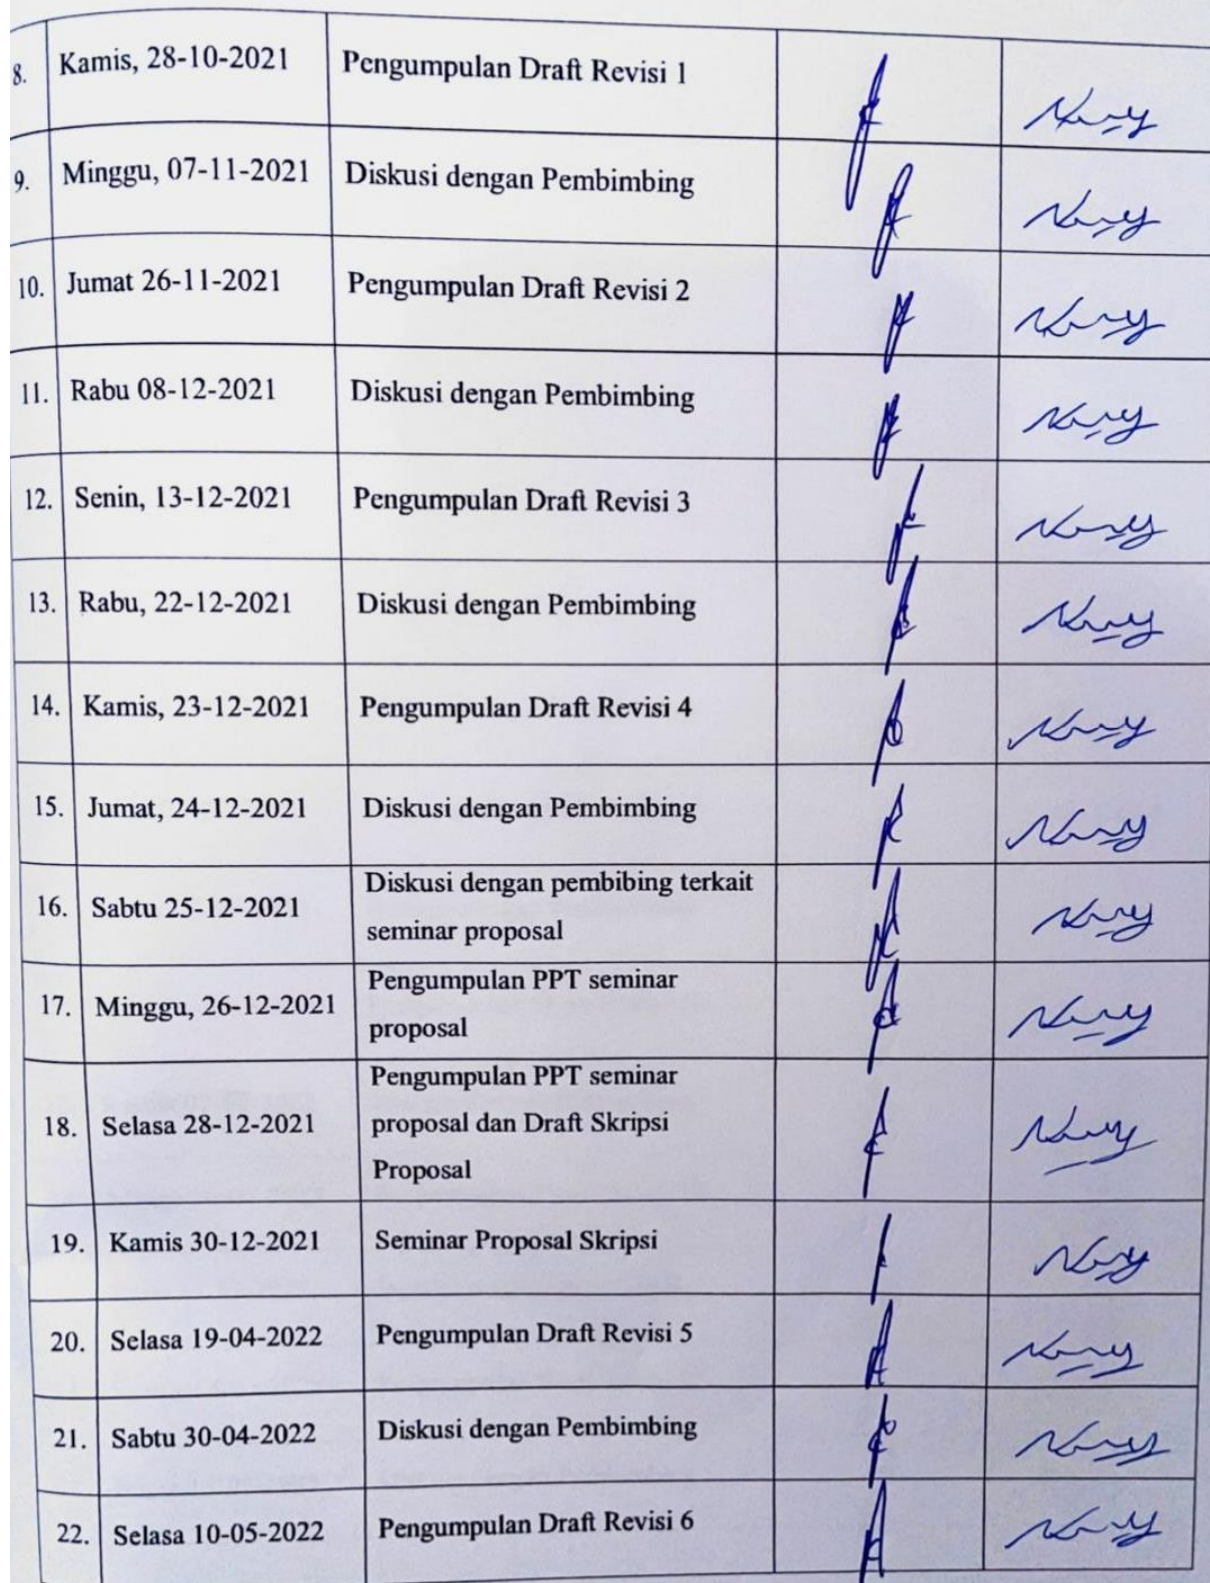 8. Kamis, 28-10-2021 Pengumpulan Draft Revisi 1
9. Minggu, 07-11-2021 Diskusi dengan Pembimbing
10. Jumat 26-11-2021 Pengumpulan Draft Revisi 2
11. Rabu 08-12-2021 Diskusi dengan Pembimbing
12. Senin, 13-12-2021 Pengumpulan Draft Revisi 3
13. Rabu, 22-12-2021 Diskusi dengan Pembimbing
14. Kamis, 23-12-2021 Pengumpulan Draft Revisi 4
15. Jumat, 24-12-2021 Diskusi dengan Pembimbing
16. Sabtu 25-12-2021 Diskusi dengan pembibing terkait
seminar proposal
17. Minggu, 26-12-2021 Pengumpulan PPT seminar
proposal
18. Selasa 28-12-2021 Pengumpulan PPT seminar
proposal dan Draft Skripsi
Proposal
19. Kamis 30-12-2021 Seminar Proposal Skripsi
20. Selasa 19-04-2022 Pengumpulan Draft Revisi 5
21. Sabtu 30-04-2022 Diskusi dengan Pembimbing
22. Selasa 10-05-2022 Pengumpulan Draft Revisi 6